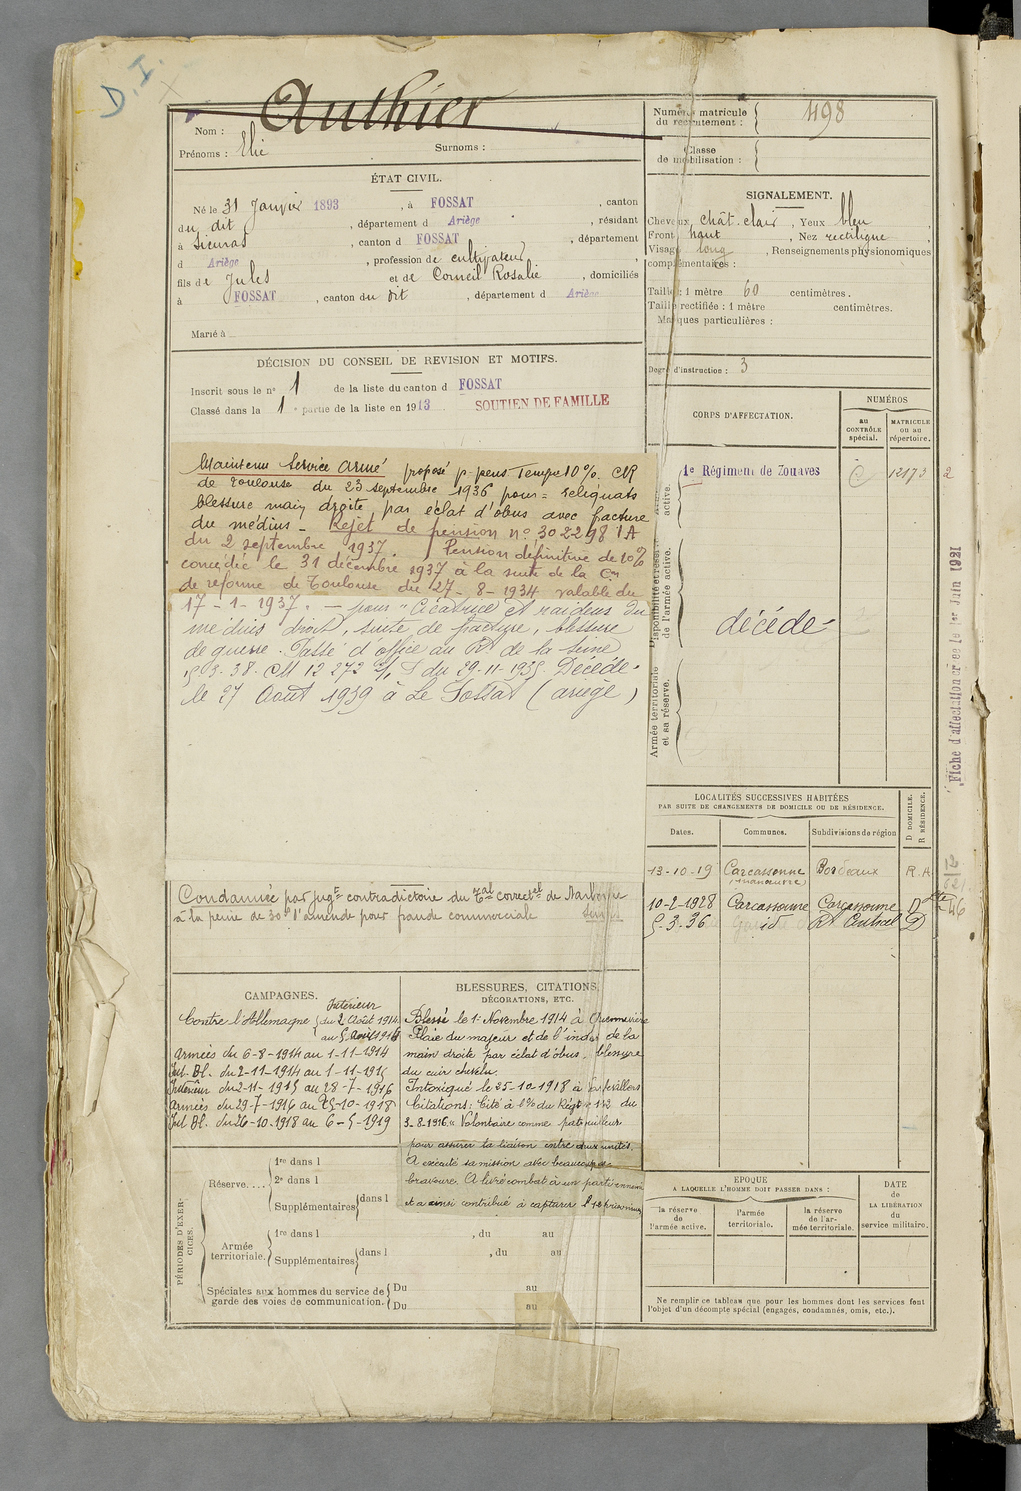 D.I.
Authier
Nom :
Prénoms : Elie Surnoms :
Numéro matricule du recrutement : 498
Classe de mobilisation :
ÉTAT CIVIL.
Né le 31 Janvier 1893, à FOSSAT, canton
du dit, département d Ariège, résidant
à Sieuras, canton d FOSSAT, département
d Ariège, profession de cultivateur,
fils de Jules et de Corneil Rosalie, domiciliés
à FOSSAT, canton du dit, département d Ariège
Marié à
SIGNALEMENT.
Cheveux chât. clair, Yeux bleu
Front haut, Nez rectiligne,
Visage long, Renseignements physionomiques
complémentaires :
Taille : 1 mètre 60 centimètres.
Taille rectifiée : 1 mètre centimètres.
Marques particulières :
Degré d'instruction : 3
DÉCISION DU CONSEIL DE REVISION ET MOTIFS.
Inscrit sous le n° 1 de la liste du canton d FOSSAT
Classé dans la 1e partie de la liste en 1913 SOUTIEN DE FAMILLE
Maintenu Service armé proposé p. pens Tempe 10%. CR
de Toulouse du 23 septembre 1936 pour = reliquats
blessure main droite par éclat d'obus avec fracture
du médius - Rejet de pension n° 302298 IA
du 2 septembre 1937. Pension définitive de 10%
concédié le 31 décembre 1937 à la suite de la Con
de réforme de Toulouse du 27-8-1934 valable du
17-1-1937. - pour "Cicatrice et raideur du
médius droit, suite de fracture, blessure
de guerre. Passé d'office au RT de la Seine
5.3.38. CM 12 272 du 29.11.1935 Décédé
le 27 Août 1939 à Le Fossat (ariège)
CORPS D'AFFECTATION.
NUMÉROS
au CONTRÔLE spécial.
MATRICULE ou au répertoire.
active.
1e Régiment de Zouaves 12173 2
Disponibilité et réserve de l'armée active.
décédé
Armée territoriale et sa réserve.
Fiche d'affectation créée le 1er Juin 1921
LOCALITÉS SUCCESSIVES HABITÉES
PAR SUITE DE CHANGEMENTS DE DOMICILE OU DE RÉSIDENCE.
Dates. Communes. Subdivisions de région D DOMICILE. R RÉSIDENCE.
13-10-19 Carcassonne Bordeaux R.A.
10-2-1928 Carcassonne Carcassonne D
5-3-36 id Rt Central D
Condamné par jugt contradictoire du Tal correctel de Narbonne
à la peine de 30f d'amende pour fraude commerciale
CAMPAGNES.
Intérieur
Contre l'Allemagne du 2 Août 1914
au 5 Août 1914
Armées du 6-8-1914 au 1-11-1914
Int. Bl. du 2-11-1914 au 1-11-1915
Intérieur du 2-11-1915 au 28-7-1916
Armées du 29-7-1916 au 25-10-1918
Int Bl. du 26-10-1918 au 6-5-1919
BLESSURES, CITATIONS,
DÉCORATIONS, ETC.
Blessé le 1er Novembre 1914 à Quennevière
Plaie du majeur et de l'index de la
main droite par éclat d'obus, blessure
du cuir chevelu.
Intoxiqué le 25-10-1918 à
Citations : Cité à l'% du Régt n° 142 du
3-8-1916. " Volontaire comme patrouilleur
pour assurer la liaison entre deux unités.
A exécuté sa mission avec beaucoup de
bravoure. A livré combat à un parti ennemi
et a ainsi contribué à capturer 12 prisonniers
PÉRIODES D'EXERCICES.
Réserve....
1re dans l
2e dans l
Supplémentaires dans l
Armée territoriale.
1re dans l , du au
Supplémentaires dans l , du au
Spéciales aux hommes du service de garde des voies de communication.
Du au
Du au
EPOQUE
A LAQUELLE L'HOMME DOIT PASSER DANS :
la réserve de l'armée active.
l'armée territoriale.
la réserve de l'armée territoriale.
DATE de LA LIBÉRATION du service militaire.
Ne remplir ce tableau que pour les hommes dont les services font
l'objet d'un décompte spécial (engagés, condamnés, omis, etc.).